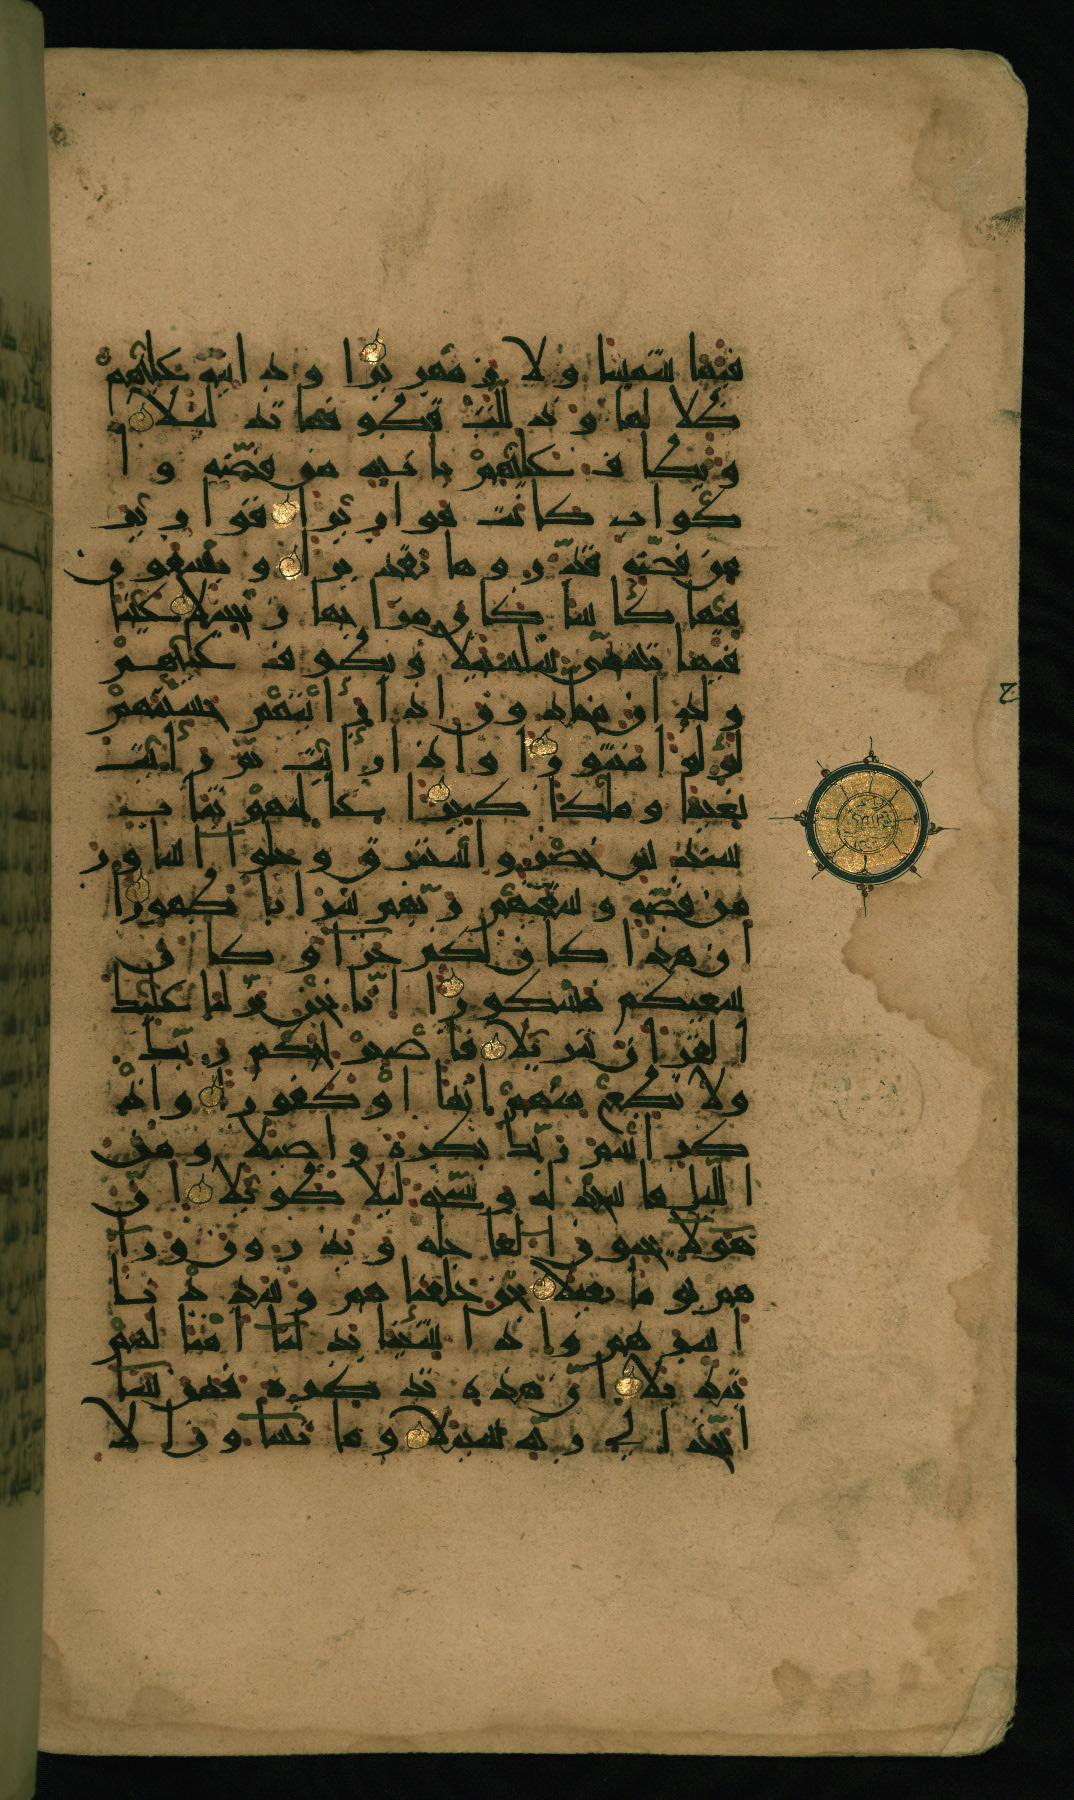 فيها شمسا ولا زمهريرا ودانية عليهم
ظلالها وذللت قطوفها تذليلا
ويطاف عليهم بانية من فضة وا
كواب كانت قواريرا قوارير
من فضة قدروها تقديرا ويسقون
فيها كأسا كان مزاجها زنجبيلا عينا
فيها تسمى سلسبيلا ويطوف عليهم
ولدان مخلدون اذا رأيتهم حسبتهم
لؤلؤا منثورا واذا رأيت ثم رأيت
نعيما وملكا كبيرا عاليهم ثياب
سندس خضر واستبرق وحلوا اساور
من فضة وسقيهم ربهم شرابا طهورا
ان هذا كان لكم جزآ وكان
سعيكم مشكورا انا نحن نزلنا عليك
القران تنزيلا فاصبر لحكم ربك
ولا تطع منهم اثما او كفورا واذ
كر اسم ربك بكرة واصيلا ومن
الليل فاسجد له وسبحه ليلا طويلا ان
هؤلآ يحبون العاجلة ويذرون ورآ
هم يوما ثقيلا نحن خلقناهم وشددنا
اسرهم واذا شئنا بدلنا امثالهم
تبديلا ان هذه تذكرة فمن شآ
اتخذ الى ربه سبيلا وما تشآون الا
ج